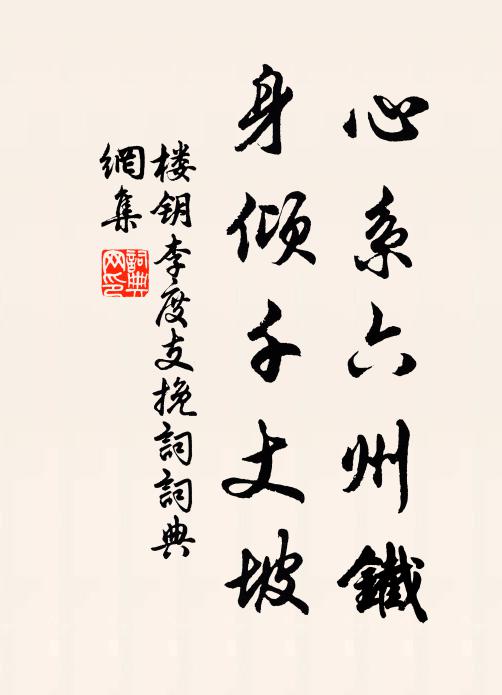 心系六州鐵
身倾千丈坡
楼钥李度支挽詞詞典
網集
詞典网印